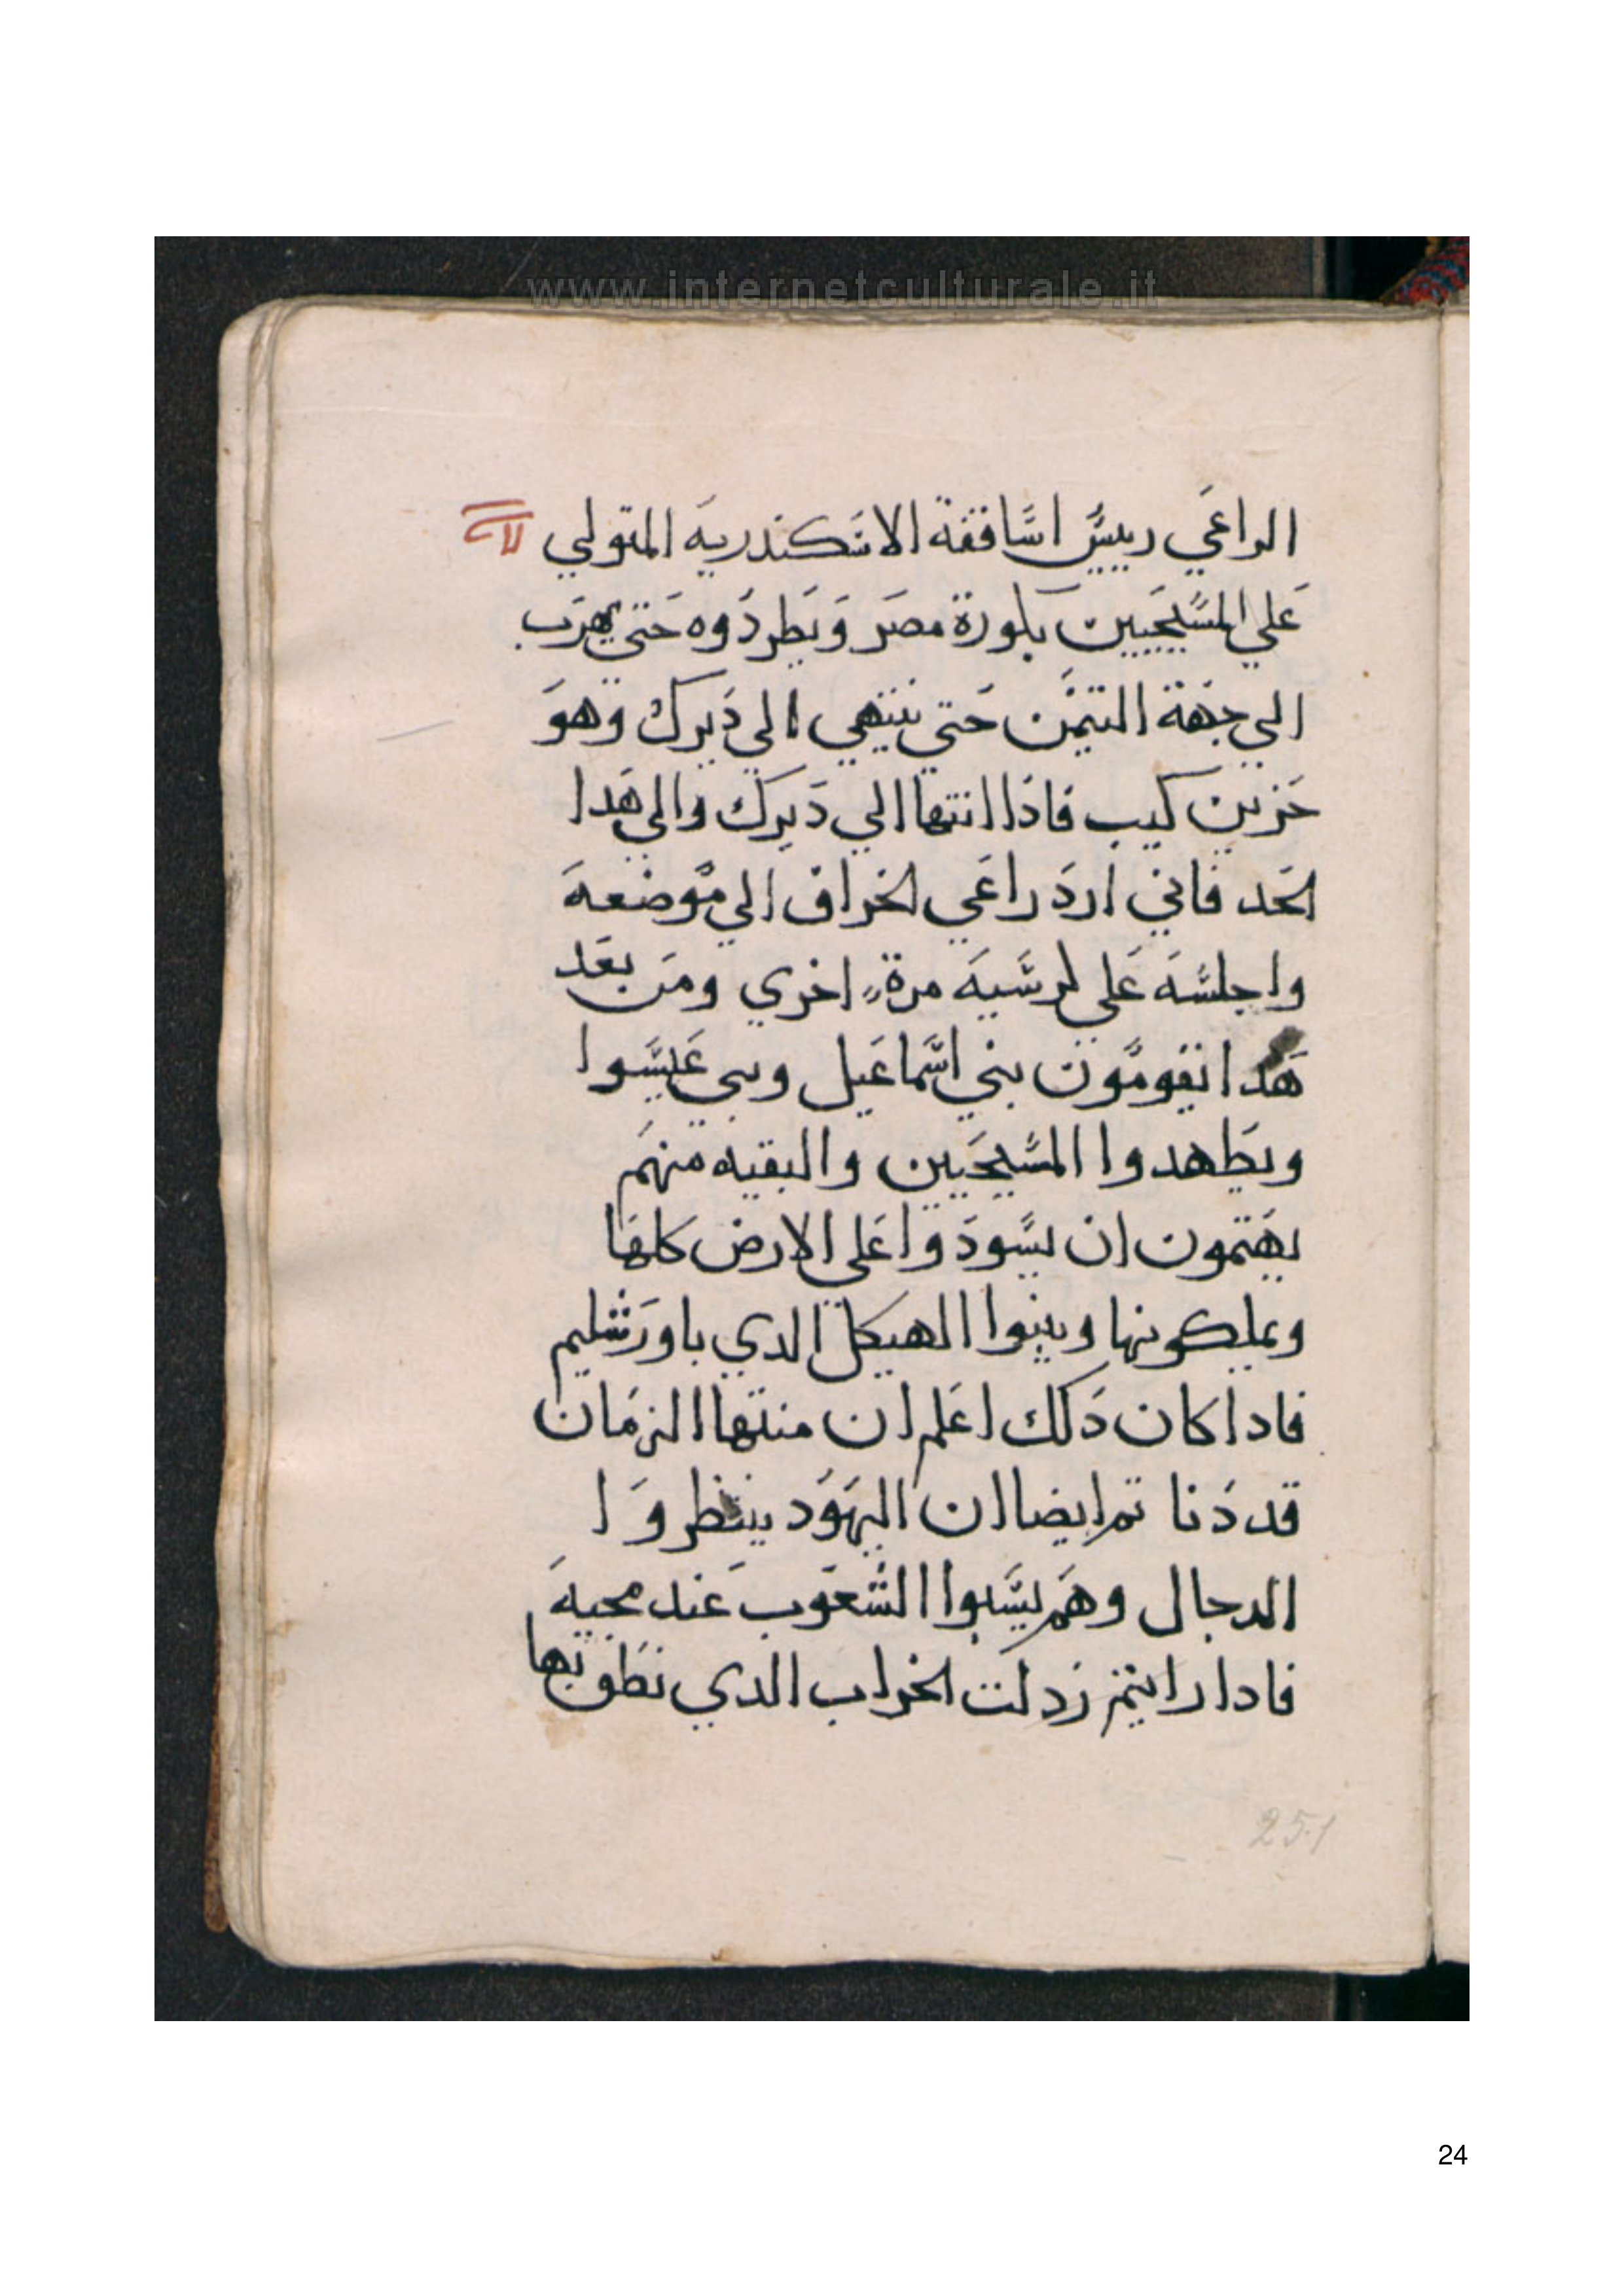 www.internetculturale.it
الراعَي رييسّ اسّاقفة الاسَكندريه المتولي
عَلي المسّيحَيين بكورة مصَر وَيَطردَوه حَتي يهرَب
الي جهَة التيمَن حَتي ينتهي الي دَيرك وهوَ
حَزين كيب فاذا انتها الي دَيرك والي هَدا
الحَد فاني اردَ راعَي الخراف الي مَوضعهَ
واجلسّه عَلي كرسَيهَ مرة اخري ومَن بعَد
هَدا يقومَون بني اسّماعَيل وبني عَيسَوا
ويضَطهدوا المسّيحَيين والبقيه منهَم
يهَتمون ان يسّودَوا عَلي الارض كلهَا
ويملكونها ويبنوا الهيكل الدي باورَشليم
فادا كان دَلك اعَلم ان منتهَا الزمَان
قد دَنا تم ايضا ان اليهَوَد ينتظروَا
الدجال وهَم يسَبوا الشَعوَب عَند مجيهَ
فادا رايتم ردلت الخراب الدي نطَق بها
251
24